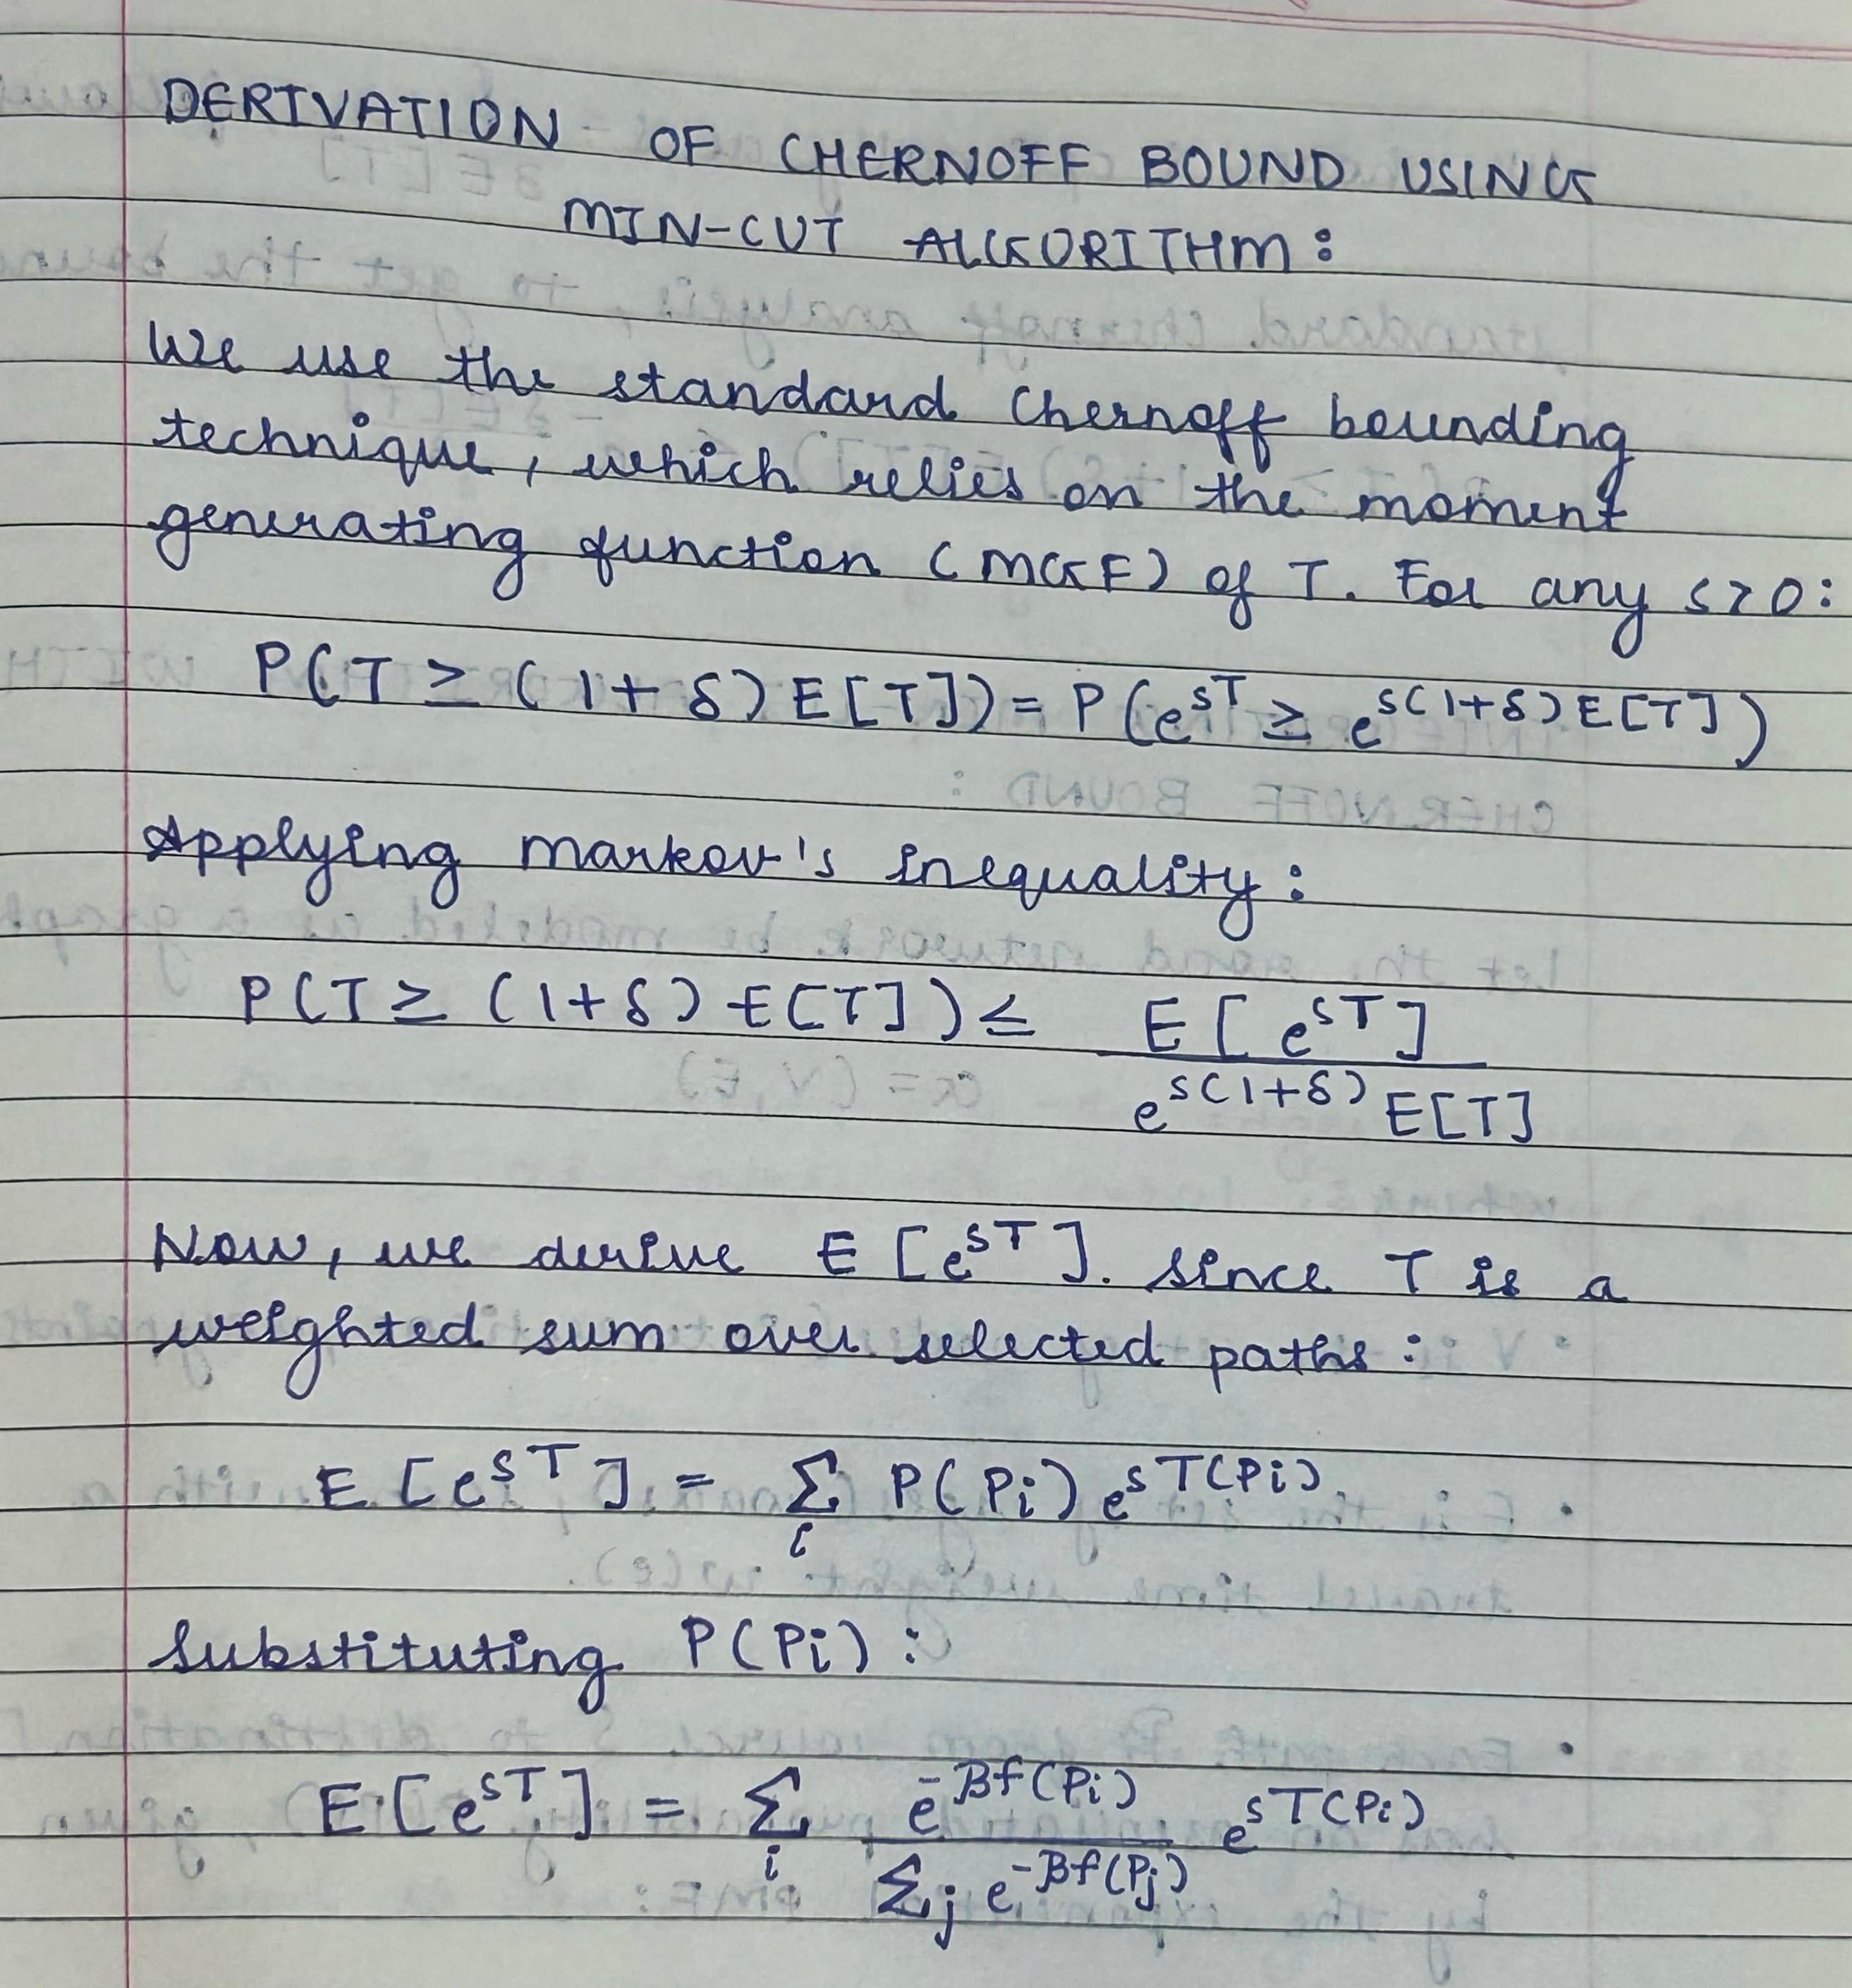 DERIVATION OF CHERNOFF BOUND USING
MIN-CUT ALGORITHM:
We use the standard Chernoff bounding
technique, which relies on the moment
generating function (MGF) of T. For any s>0:
P(T ≥ (1+δ)E[T]) = P(e^{sT} ≥ e^{s(1+δ)E[T]})
Applying markov's inequality:
P(T ≥ (1+δ)E[T]) ≤ E[e^{sT}] / e^{s(1+δ)}E[T]
Now, we derive E[e^{sT}]. Since T is a
weighted sum over selected paths:
E[e^{sT}] = ∑_i P(Pi) e^{sT(Pi)}.
Substituting P(Pi):
E[e^{sT}] = ∑_i e^{-βf(Pi)} / ∑_j e^{-βf(Pj)} e^{sT(Pi)}